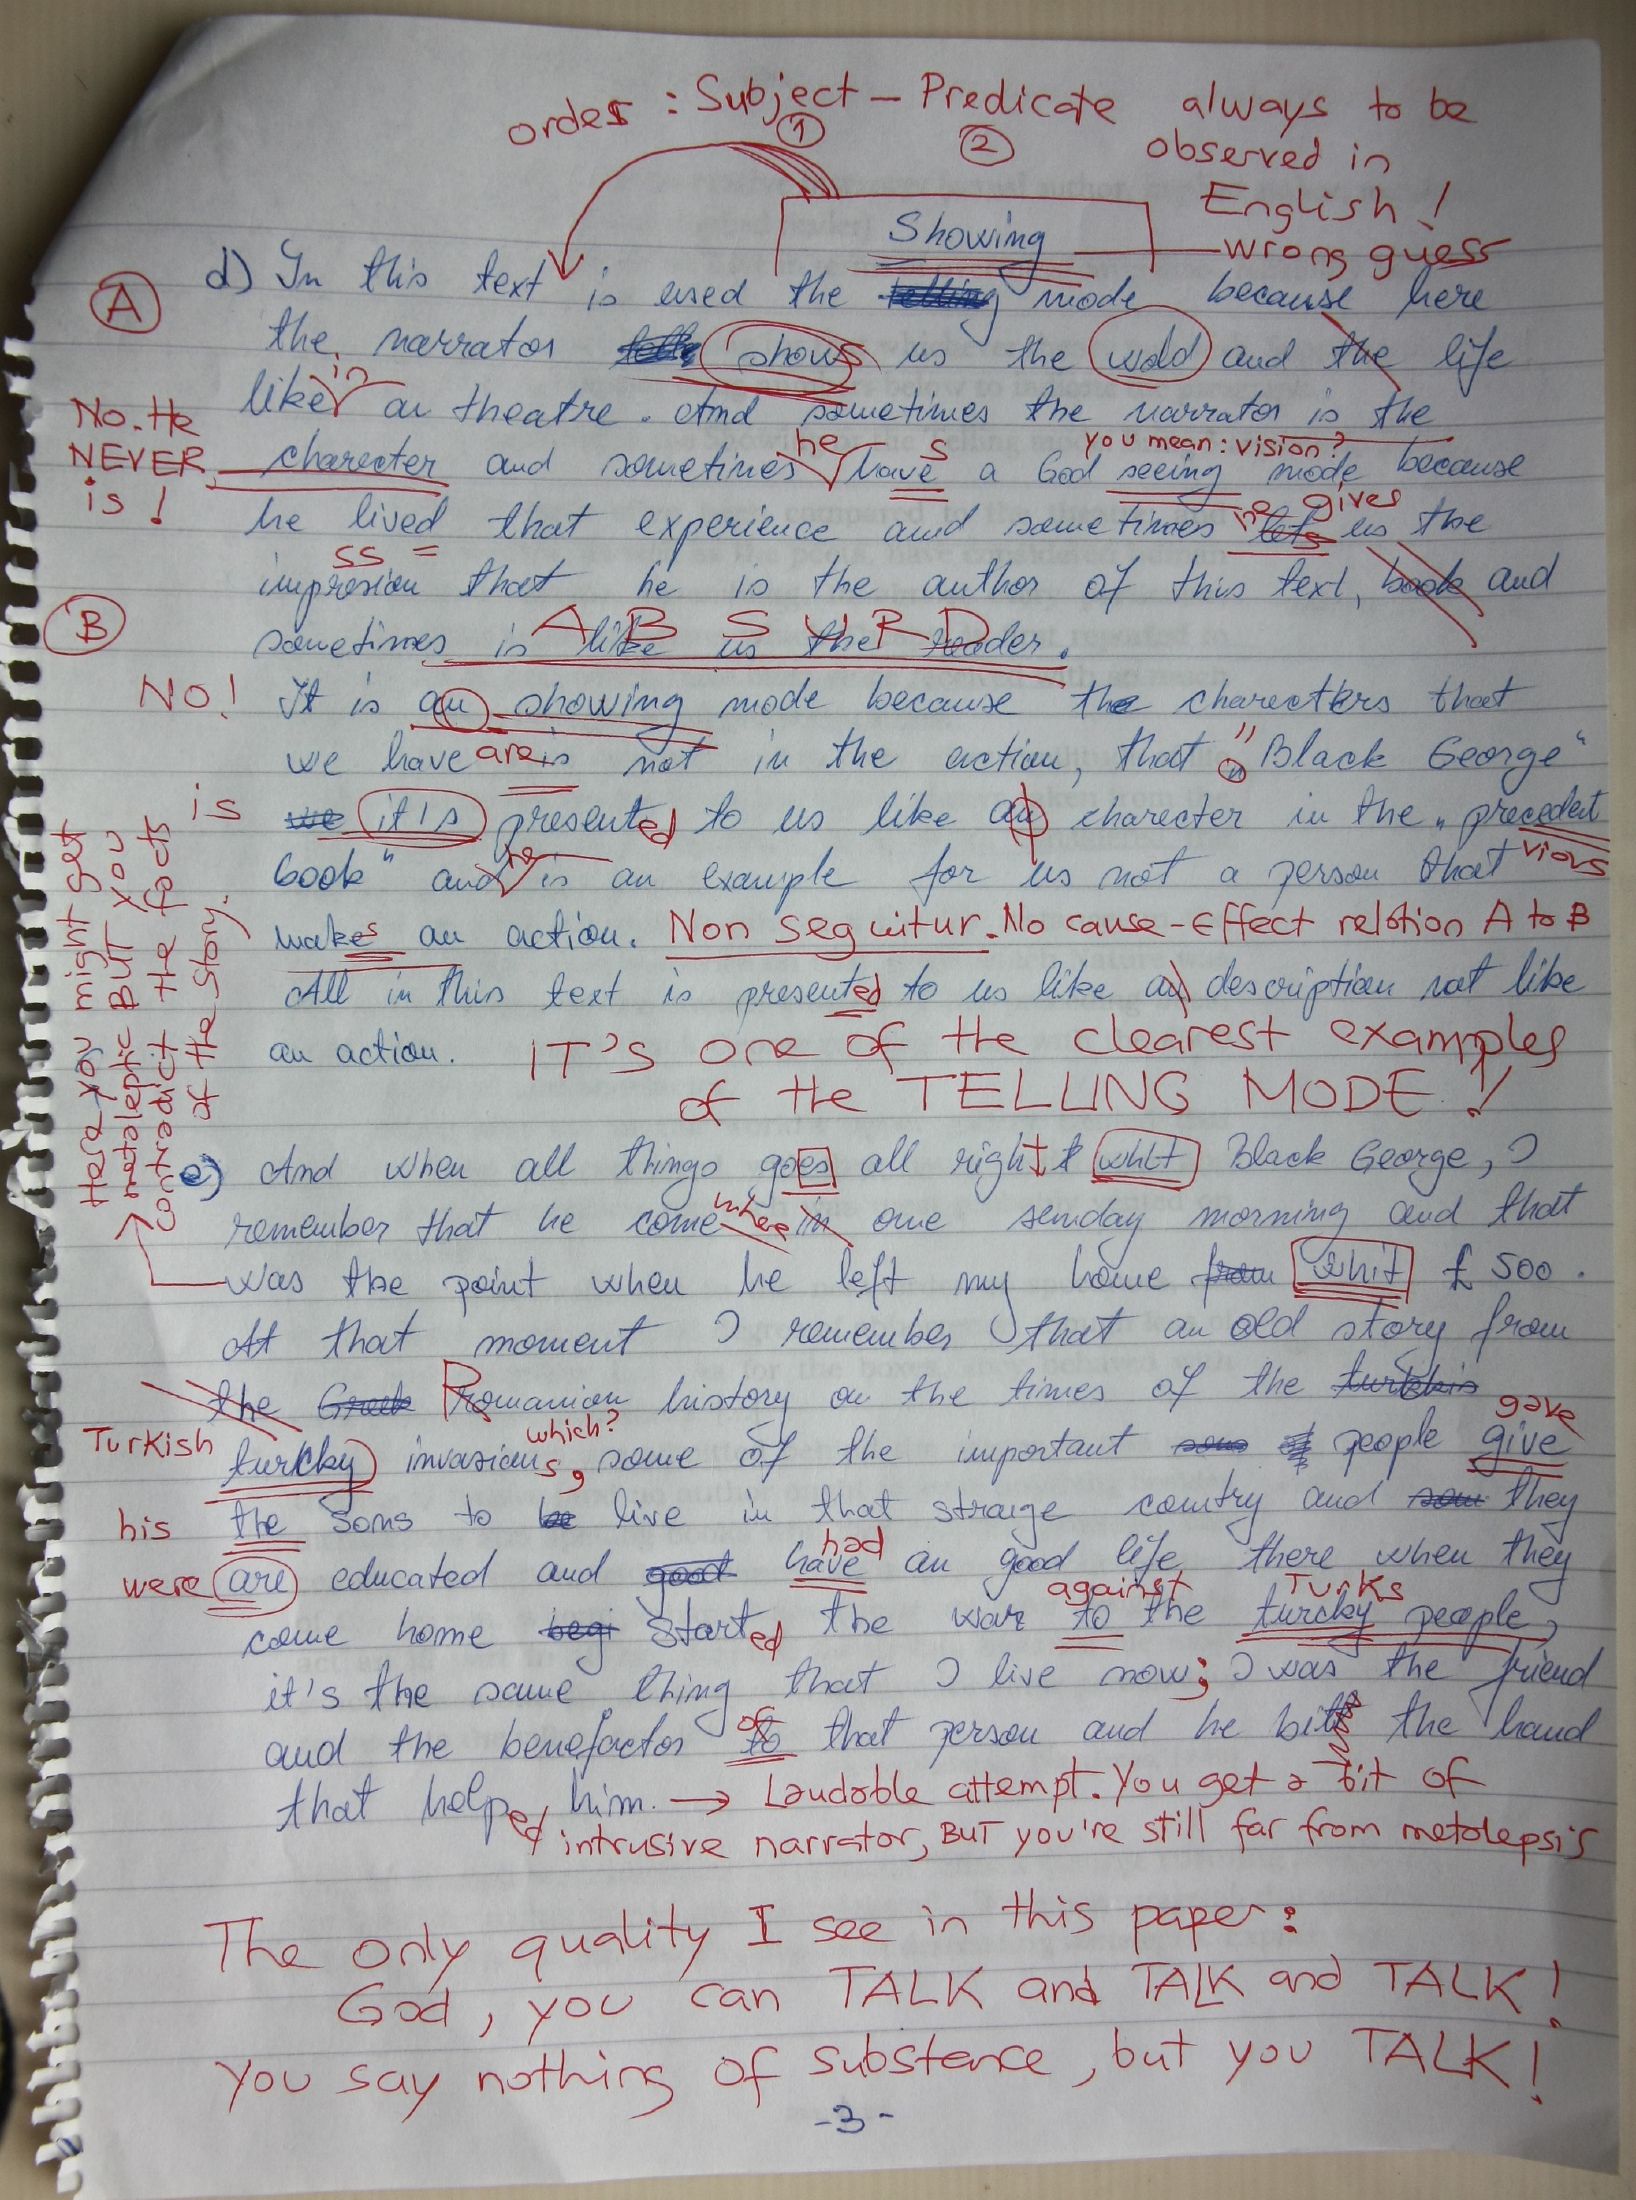 order : Subject – Predicate always to be
① ② observed in
English !
Showing wrong guess
A
d) In this text is used the telling mode because here
the narrator shows us the wold and the life
in
like a theatre. And sometimes the narrator is the
No. He NEVER is !
he s you mean : vision?
charecter and sometimes have a God seeing mode because
he gives
he lived that experience and sometimes lets us the
ss =
impresion that he is the author of this text, book and
B
ABSURD
sometimes is like us the reader.
NO!
It is an showing mode because the charecters that
are "
we have is not in the action, that „Black George"
is
we it is presented to us like an charecter in the „precedent
he vious
book" and is an example for us not a person that
makes an action. Non sequitur. No cause-Effect relation A to B
All in this text is presented to us like an description not like
an action. IT's one of the clearest examples
of the TELLING MODE !
Here you might get
metaleptic BUT you
contradict the facts
of the story.
e) And when all things goes all right whit Black George, I
when
remember that he come in one sunday morning and that
was the point when he left my home from whit £ 500.
At that moment I remember that an old story from
the Greek Romanian history on the times of the turkis
Turkish which? gave
turcky invasions, some of the important people give
his
the sons to be live in that straige country and they
were had
are educated and good have an good life there when they
against Turks
come home begi started the war to the turcky people,
it's the same thing that I live now; I was the friend
of
and the benefactor to that person and he bit the hand
that helped him. → Laudable attempt. You get a bit of
intrusive narrator, BUT you're still far from metalepsis
The only quality I see in this paper :
God, you can TALK and TALK and TALK !
You say nothing of substance, but you TALK !
-3-